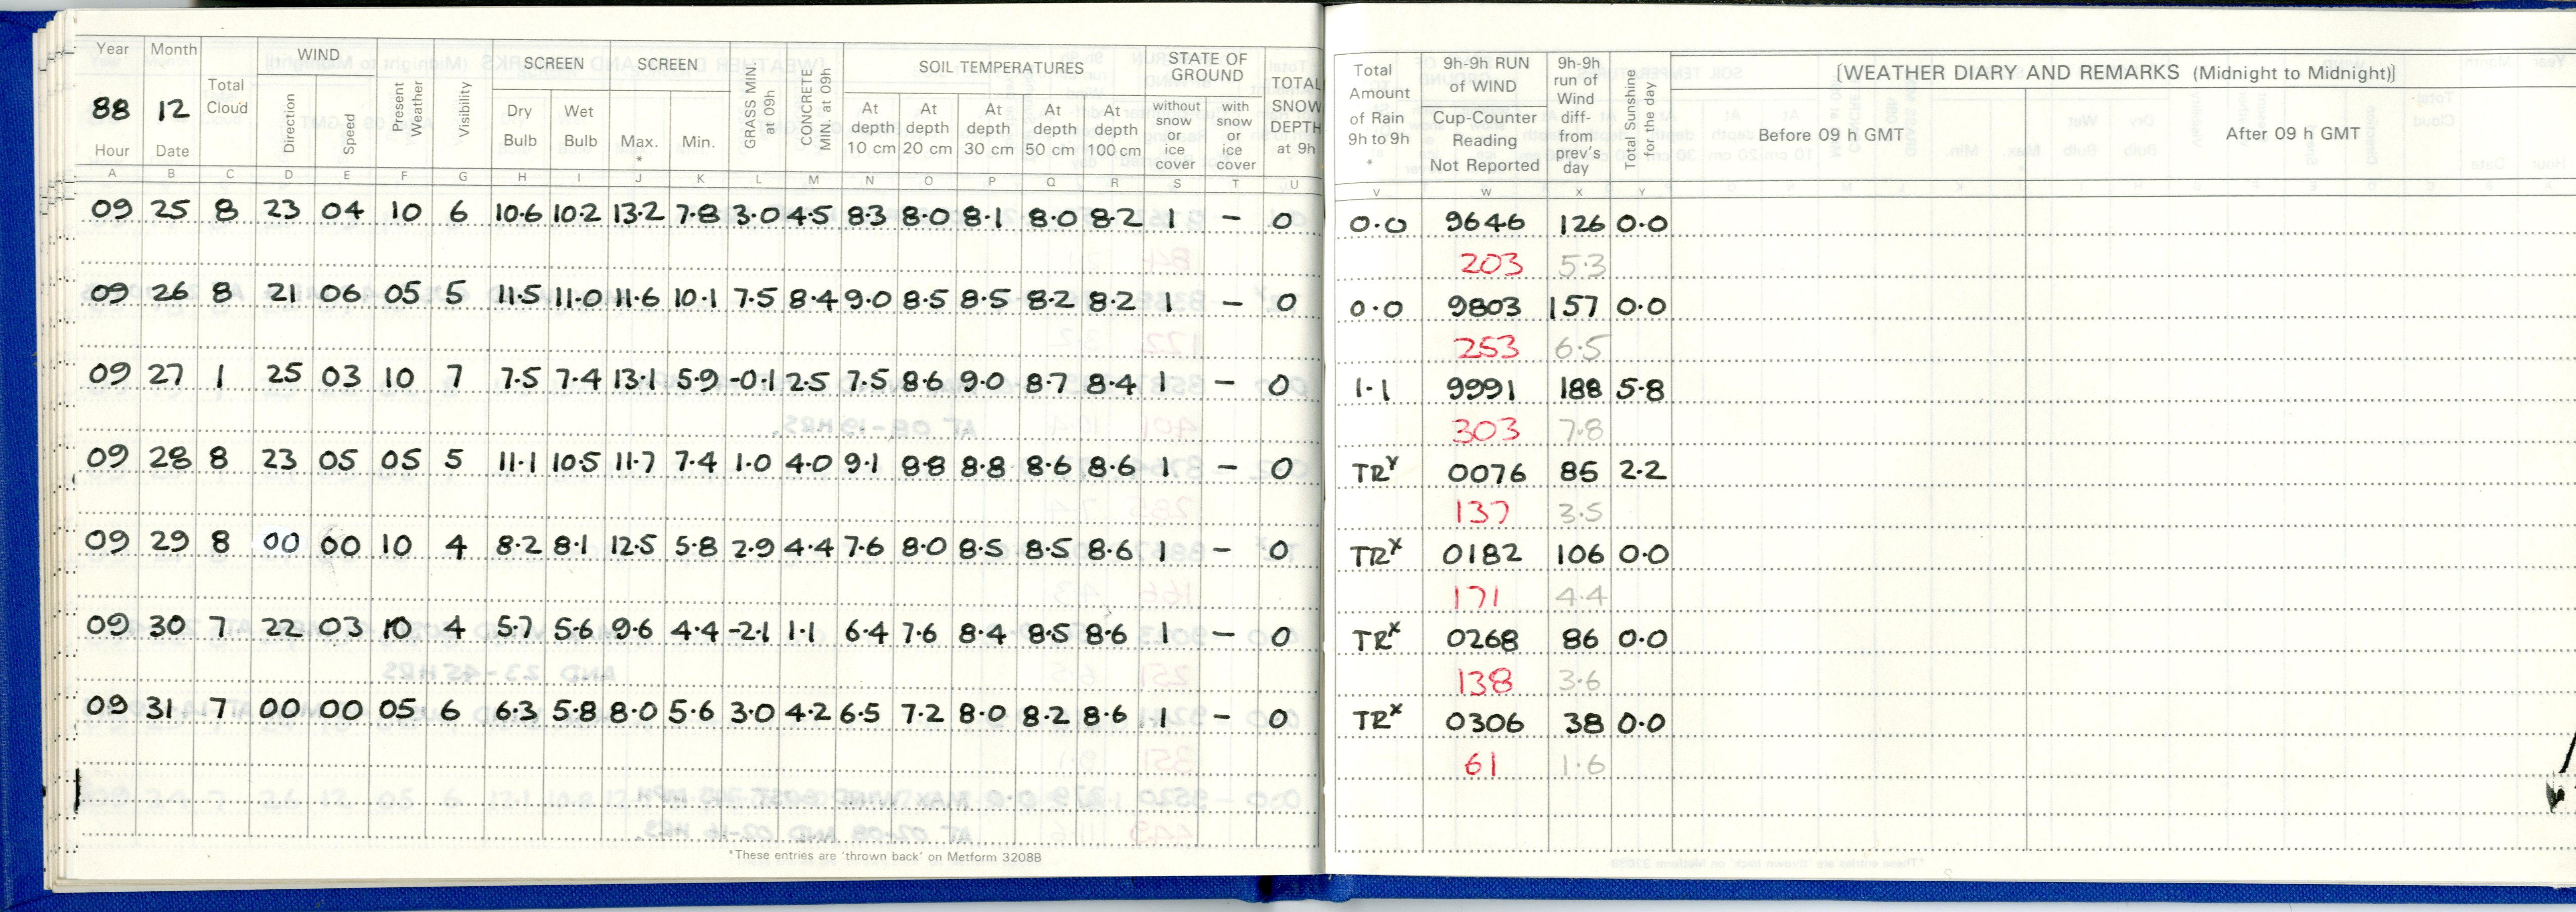 Year Month WIND SCREEN SCREEN SOIL TEMPERATURES STATE OF GROUND
88 12 Total Cloud Direction Speed Present Weather Visibility Dry Bulb Wet Bulb Max. * Min. GRASS MIN at 09h CONCRETE MIN. at 09h At depth 10 cm At depth 20 cm At depth 30 cm At depth 50 cm At depth 100 cm without snow or ice cover with snow or ice cover TOTAL SNOW DEPTH at 9h
Hour Date
A B C D E F G H I J K L M N O P Q R S T U
09 25 8 23 04 10 6 10.6 10.2 13.2 7.8 3.0 4.5 8.3 8.0 8.1 8.0 8.2 1 – 0
09 26 8 21 06 05 5 11.5 11.0 11.6 10.1 7.5 8.4 9.0 8.5 8.5 8.2 8.2 1 – 0
09 27 1 25 03 10 7 7.5 7.4 13.1 5.9 -0.1 2.5 7.5 8.6 9.0 8.7 8.4 1 – 0
09 28 8 23 05 05 5 11.1 10.5 11.7 7.4 1.0 4.0 9.1 8.8 8.8 8.6 8.6 1 – 0
09 29 8 00 00 10 4 8.2 8.1 12.5 5.8 2.9 4.4 7.6 8.0 8.5 8.5 8.6 1 – 0
09 30 7 22 03 10 4 5.7 5.6 9.6 4.4 -2.1 1.1 6.4 7.6 8.4 8.5 8.6 1 – 0
09 31 7 00 00 05 6 6.3 5.8 8.0 5.6 3.0 4.2 6.5 7.2 8.0 8.2 8.6 1 – 0
*These entries are 'thrown back' on Metform 3208B
Total Amount of Rain 9h to 9h * 9h-9h RUN of WIND Cup-Counter Reading Not Reported 9h-9h run of Wind diff- from prev's day Total Sunshine for the day [WEATHER DIARY AND REMARKS (Midnight to Midnight)]
Before 09 h GMT After 09 h GMT
V W X Y
0.0 9646 126 0.0
203 5.3
0.0 9803 157 0.0
253 6.5
1.1 9991 188 5.8
303 7.8
TRY 0076 85 2.2
137 3.5
TRX 0182 106 0.0
171 4.4
TRX 0268 86 0.0
138 3.6
TRX 0306 38 0.0
61 1.6